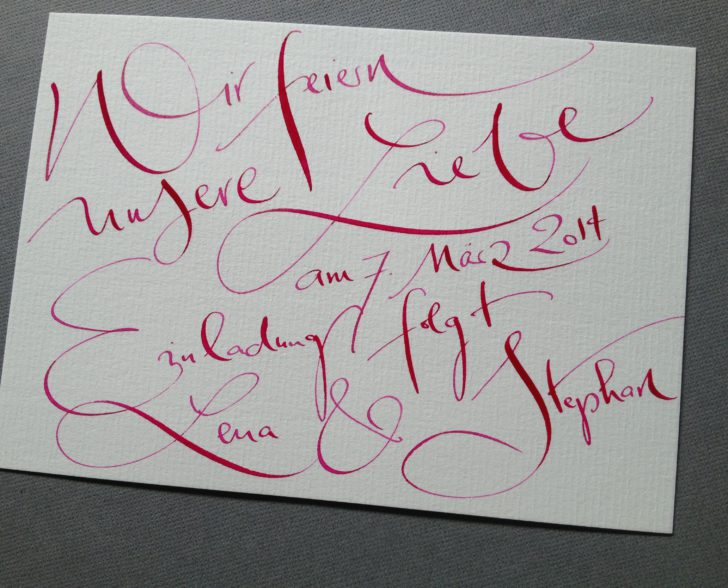 Wir feiern
unsere Liebe
am 7. März 2014
Einladung folgt
Lena & Stephan